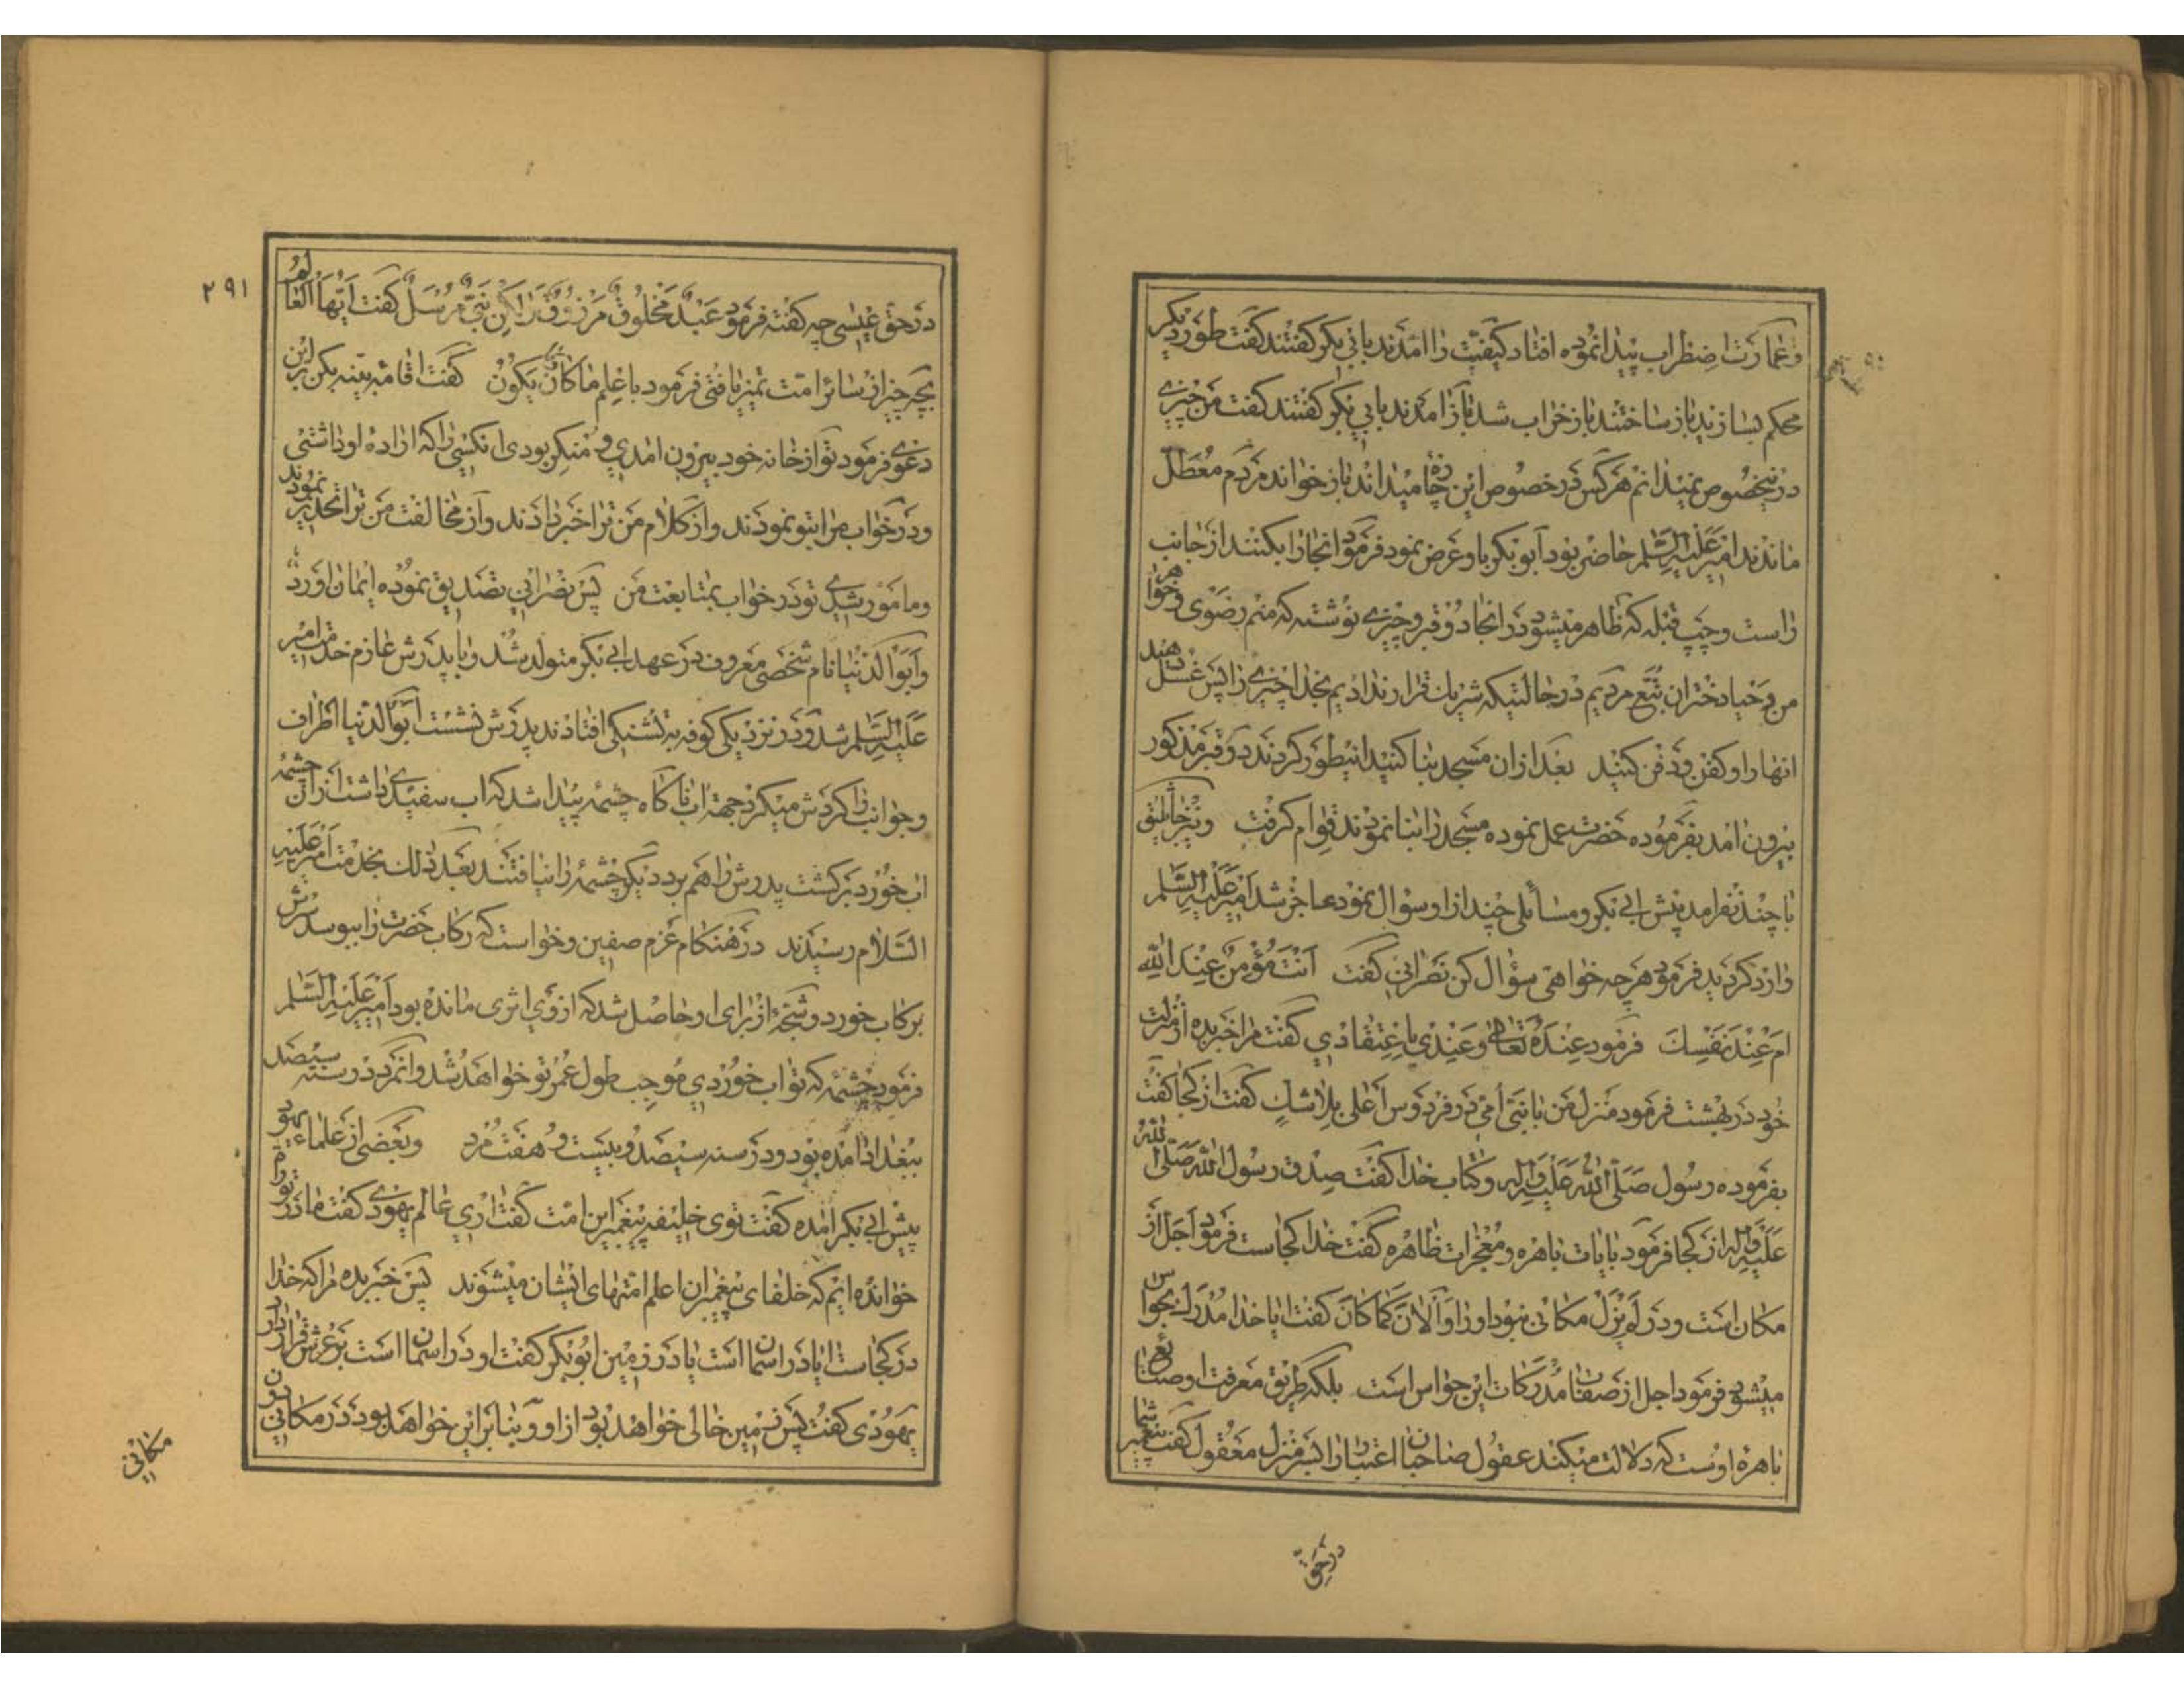 و عمارت اضطراب پیدا نموده افتاد کیفیت را امدند بابی بکر کفتند کفت طور دیکر
محکم بسازید باز ساختند باز خراب شد باز امدند بابی بکر کفتند کفت من چیزی
درینخصوص نمیدانم هر کس در خصوص این چاره میداند باز خوانده مردم معطل
ماندند امیر علیه السلم حاضر بود ابو بکر باو عرض نمود فرمود انجا را بکنند از جانب
راست و چپ قبله که ظاهر میشود در انجا دو قبر و چیزی نوشته که منم رضوی و خواهر
من و حبا دختران تبع مردیم در حالتیکه شریك قرار ندادیم بخدا چیزی را پس غسل دهید
انها را و کفن و دفن کنید بعد از ان مسجد بنا کنید اینطور کردند دو قبر مذکور
بیرون امد بفرموده حضرت عمل نموده مسجد را بنا نمودند قوام کرفت و نیز جاثلیق
با چند نفر امد پیش ابی بکر و مسائلی چند از او سؤال نمود عاجز شد امیر علیه السلم
وارد کردید فرمود هر چه خواهی سؤال کن نصرانی کفت انت مؤمن عند الله
ام عند نفسك فرمود عنده تعالی و عندی باعتقادی کفت مرا خبر بده از منزلت
خود در بهشت فرمود منزل من با نبی امی در فردوس اعلی بلا شك کفت از کجا کفت
بفرموده رسول صلی الله علیه و اله و کتاب خدا کفت صدق رسول الله صلی الله
علیه و اله از کجا فرمود بایات باهره و معجزات ظاهره کفت خدا کجاست فرمود اجل از
مکان است و در لم یزل مکانی نبود او را و الان کما کان کفت ایا خدا مدرك بحواس
میشود فرمود اجل از صفات مدرکات این حواس است بلکه طریق معرفت او صنایع
باهره اوست که دلالت میکند عقول صاحبان اعتبار را بسر منزل معقول کفت پیغمبر شما
در حق
۲۹۱
در حق عیسی چه کفته فرمود عبد مخلوق مرزوق و لکن نبی مرسل کفت ایها العالم
بچه چیز از سائر امت تمیز یافتی فرمود با علم ما کان و یکون کفت اقامه بینه بکن براین
دعوی فرمود تو از خانه خود بیرون امدی و منکر بودی انکسی را که اراده او داشتی
و در خواب مرا بتو نمودند و از کلام من ترا خبر دادند و از مخالفت من ترا تحذیر نمودند
و مامور شدی تو در خواب بمتابعت من پس نصرانی تصدیق نموده ایمان اورد
و ابو الدنیا نام شخصی معروف در عهد ابی بکر متولد شد و با پدرش عازم خدمت امیر
علیه السلم شد و در نزدیکی کوفه به تشنکی افتادند پدرش نشست ابو الدنیا اطراف
و جوانب را کردش میکرد جهة اب ناکاه چشمه پیدا شد که اب سفیدی داشت از ان چشمه
اب خورد برکشت پدرش را هم برد دیکر چشمه را نیافتند بعد ذلك بخدمت امیر علیه
السلام رسیدند در هنکام عزم صفین و خواست که رکاب حضرت را ببوسد سرش
برکاب خورد و شجّه از برای او حاصل شد که از وی اثری مانده بود امیر علیه السلم
فرمود چشمه که تو اب خوردی موجب طول عمر تو خواهد شد و انمرد در سنه سیصد
ببغداد امده بود و در سنه سیصد و بیست و هفت مرد و بعضی از علماء یهود
پیش ابی بکر امده کفت توی خلیفه پیغمبر این امت کفت اری عالم یهودی کفت ما در توراة
خوانده ایم که خلفای پیغمبران اعلم امتهای ایشان میشوند پس خبر بده مرا که خدا
در کجاست ایا در اسمان است یا در زمین ابو بکر کفت او در اسمان است بر عرش قرار دارد
یهودی کفت پس زمین خالی خواهد بود از او و بنا بر این خواهد بود در مکانی دون
مکانی